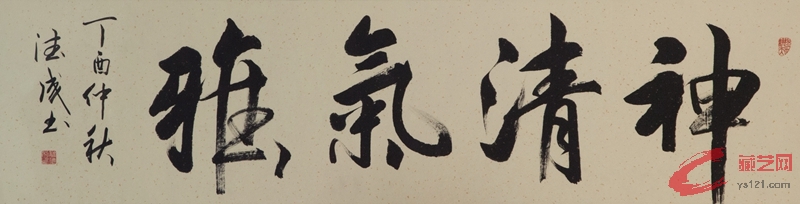 神清氣雅
丁酉仲秋
德成书
藏艺网
ys121.com